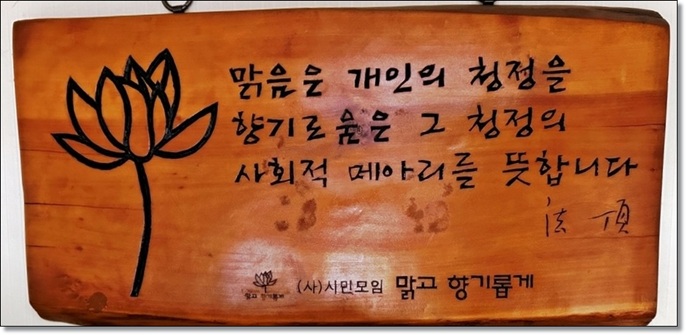 맑음은 개인의 청정을
향기로움은 그 청정의
사회적 메아리를 뜻합니다
法頂
맑고 향기롭게
(사)시민모임 맑고 향기롭게